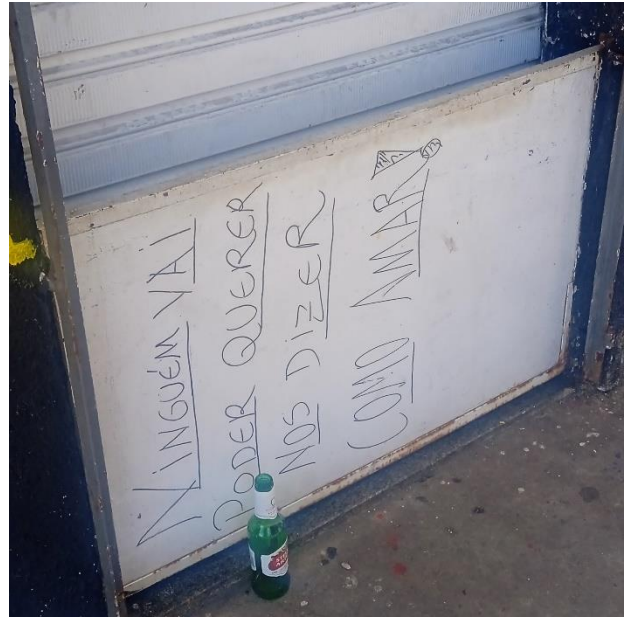 NINGUÉM VAI
PODER QUERER
NOS DIZER
COMO AMAR!